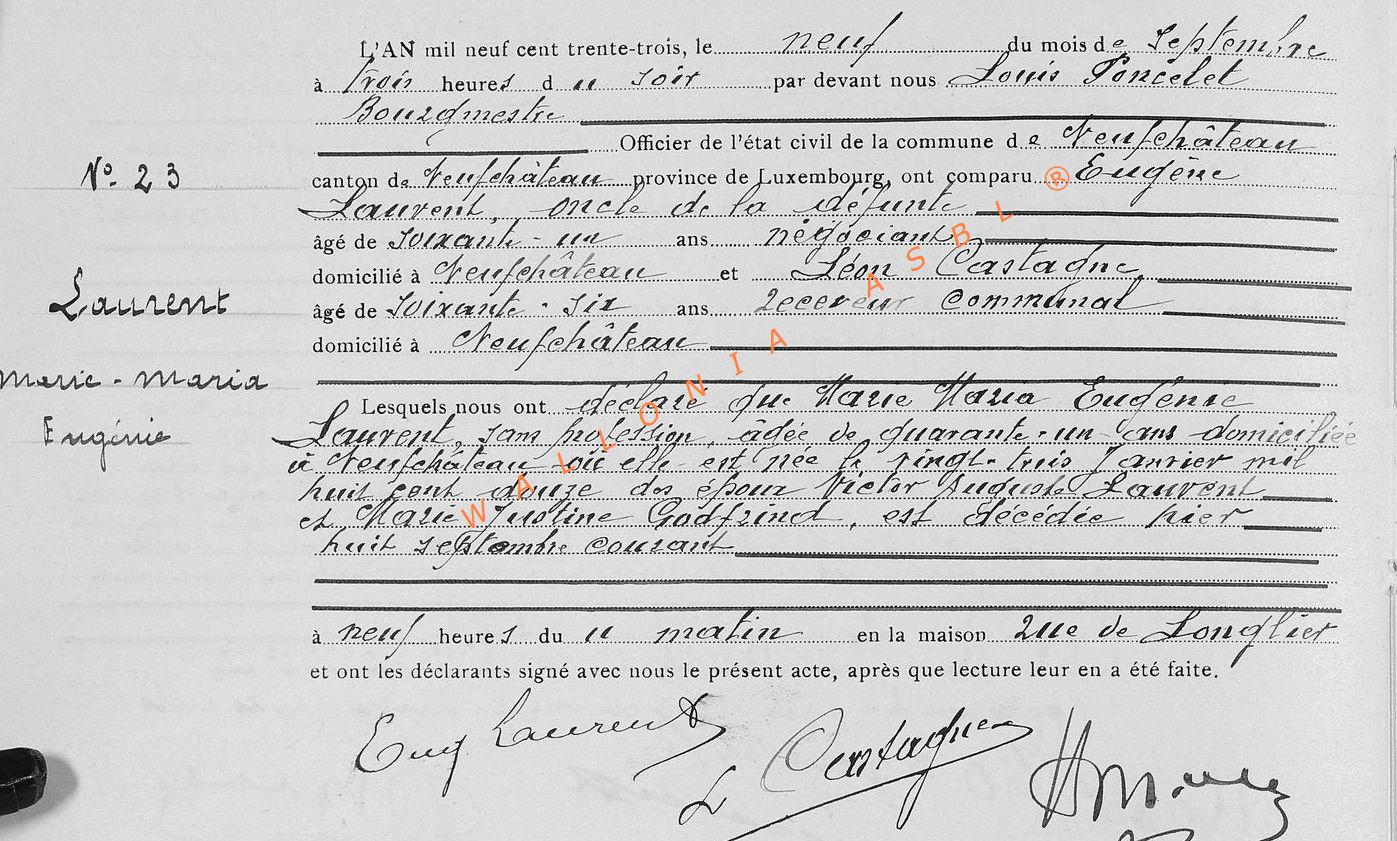 L'AN mil neuf cent trente-trois, le neuf du mois de Septembre
à trois heures du soir par devant nous Louis Poncelet
Bourgmestre
Officier de l'état civil de la commune de Neufchâteau
N° 23
canton de Neufchâteau province de Luxembourg, ont comparu Eugène
Laurent, oncle de la défunte
âgé de soixante-un ans négociant
domicilié à Neufchâteau et Léon Castagne,
Laurent
âgé de soixante-six ans receveur communal
domicilié à Neufchâteau
Marie-Maria
Lesquels nous ont déclaré que Marie Maria Eugénie
Eugénie
Laurent, sans profession, âgée de quarante-un ans domiciliée
à Neufchâteau où elle est née le vingt-trois Janvier mil
huit cent douze des époux Victor Auguste Laurent
et Marie Justine Godfrind, est décédée hier
huit septembre courant
à neuf heures du matin en la maison rue de Longlier
et ont les déclarants signé avec nous le présent acte, après que lecture leur en a été faite.
Eug Laurent
L Castagne
WALLONIA ASBL ®